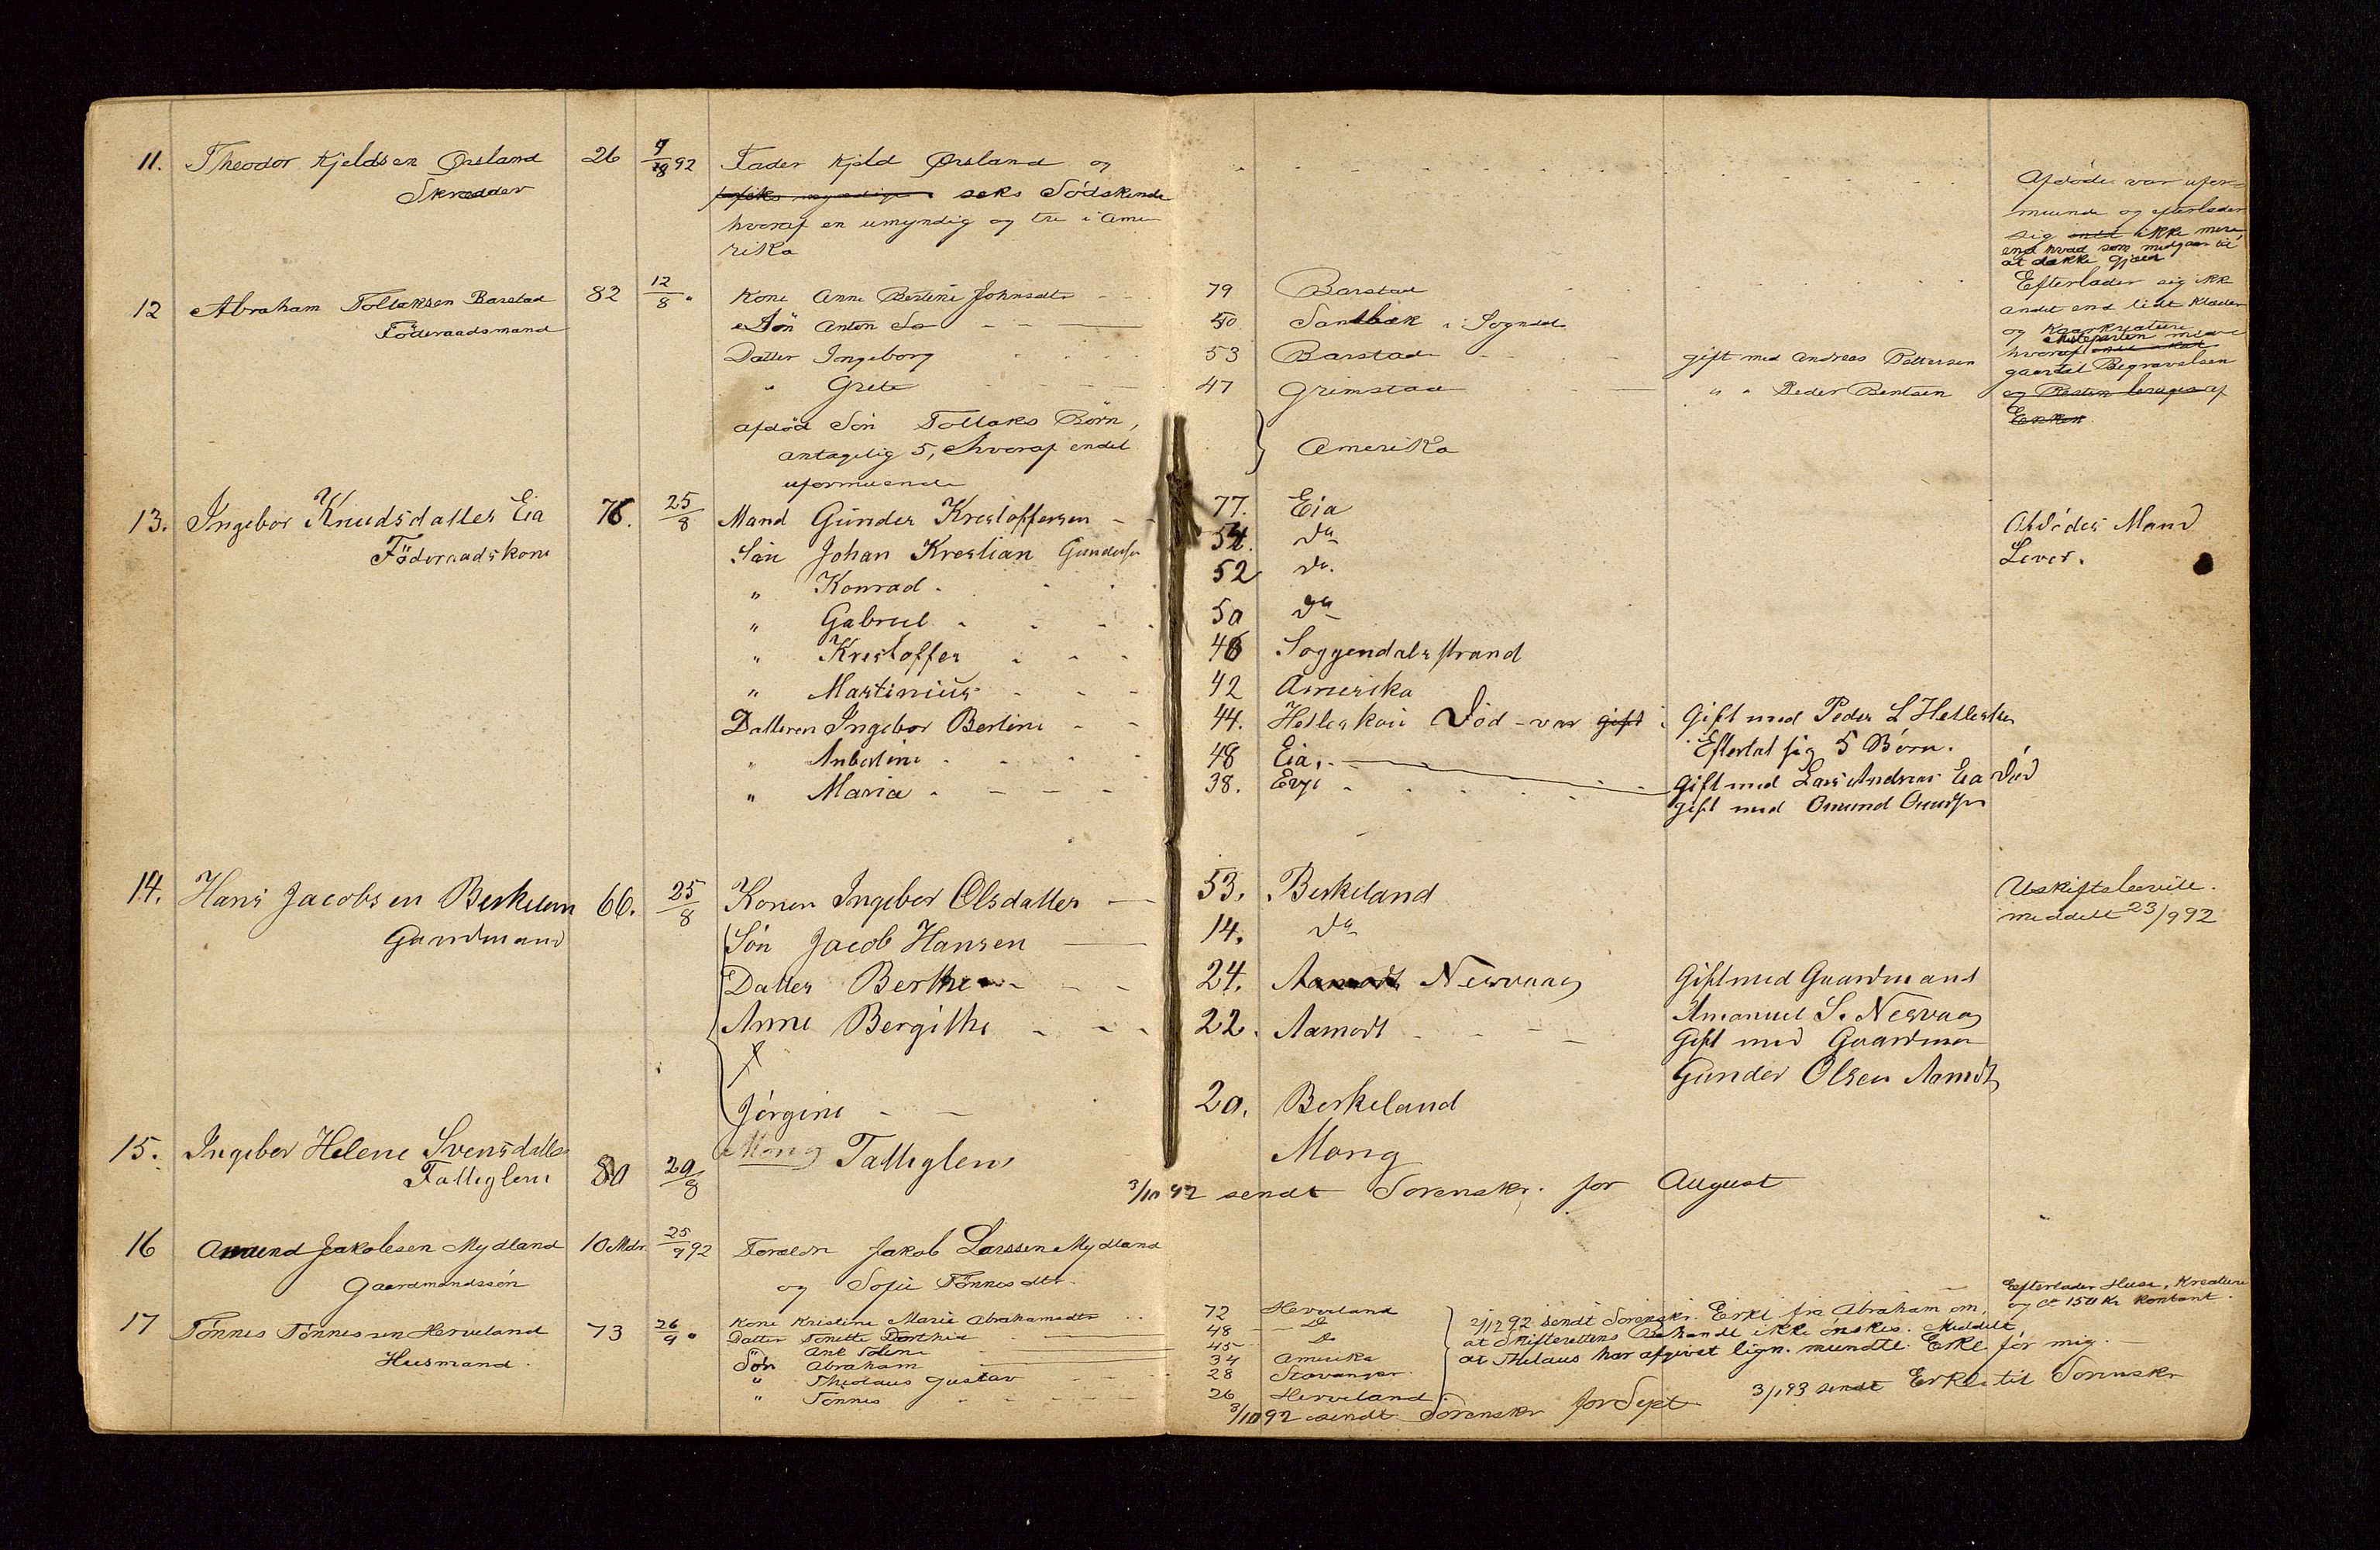 11. Theodor Kjeldsen Ørsland 26 7/8 92 Fader Kjeld Ørsland og
Skrædder seks Södskende
hvoraf en umyndig og tre i Ame
rika
Afdöde var ufor-
muende og efterlader
sig ikke mere
end hvad som medgaar til
at dække Gjæld
12 Abraham Tollaksen Barstad 82 12/8 " Kone Anne Bertine Johnsdtr 79 Barstad
Föderaadsmand Sön Anton 50 Sandbæk i Sogndal
Datter Ingeborg 53 Barstad gift med Andreas Pettersen
" Grete 47 Grimstad " " Peder Bentsen
afdöd Sön Tollaks Börn,
antagelig 5, hvoraf endel } Amerika
uformuende
Efterlader sig ikke
andet end lidt Klæder
og Kaarkreature
hvoraf
gaar til Begravelsen
og Resten bruges af
Enken
13. Ingebor Knudsdatter Eia 76. 25/8 Mand Gunder Krestoffersen 77. Eia Afdödes Mand
Föderaadskone Sön Johan Krestian Gunders 54. do Lever.
" Konrad 52 do.
" Gabriel 50 do
" Krestoffer 46 Soggendalsstrand
" Martinius 42 Amerika
Datteren Ingebor Bertine 44. Hetleskou Död - var gift Gift med Peder L Hetlesk
Efterlat sig 5 Börn.
" Anbertine 48 Eia. Gift med Lars Andreas Eia Död
" Maria 38. Evje gift med Omund
14. Hans Jacobsen Berkelan 66. 25/8 Konen Ingebor Olsdatter 53. Berkeland Uskiftebevill.
Gaardmand Sön Jacob Hansen 14. do meddelt 23/9 92
Datter Berthe 24. Aamodt Nesvaag Gift med Gaardmand
Amanuel S. Nesvaag
Anne Bergithe 22. Aamodt Gift med Gaardman
Gunder Olsen Aamdt
Jörgine 20. Berkeland
15. Ingebor Helene Svensdatter Mong Fattiglem Mong
Fattiglem 80 29/8
3/10 92 sendt Sorenskr. for August
16 Amund Jakobsen Mydland 10 Mdr. 25/9 92 Forældre Jakob Larssen Mydland
Gaardmandssön og Sofie Tönnesdtr.
17 Tönnes Tönnessen Herveland 73 26/9 " Kone Kristine Marie Abrahamsdtr 72 Herveland
Husmand. Datter Tonette Dorthia 48 Do
Ane Soline 45 Do
Sön Abraham 34 Amerika
" Theolaus Gustav 28 Stavanger
" Tönnes 26 Herveland
2/12 92 sendt Sorenskr. Erkl fra Abraham om,
at Skifterettens Behandl ikke önskes. Meddelt
at Thelaus har afgivet lign. mundtl. Erkl. for mig.
Efterlader Huse, Kreature
og ca 150 Kr kontant.
3/1 93 sendt Erkl. til Sorenskr
3/10 92 sendt Sorenskr for Sept